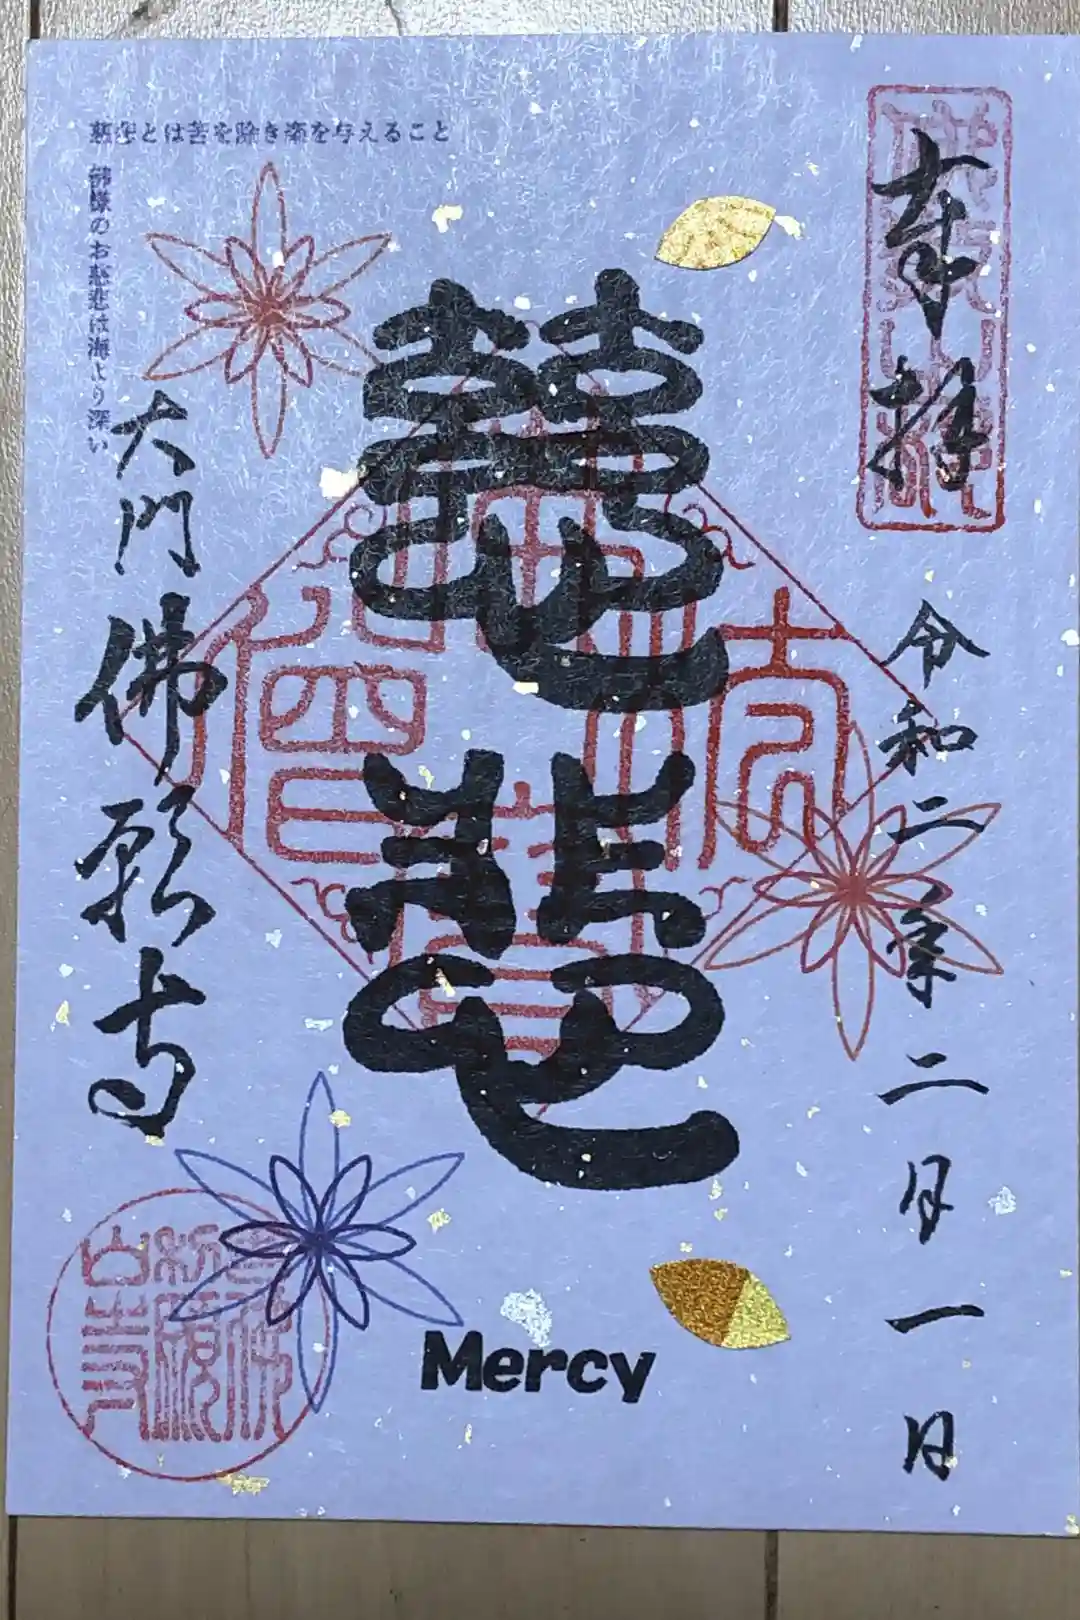 慈悲とは苦を除き楽を与えること
佛様のお慈悲は海より深い
奉拝
令和二年二月一日
慈悲
大門
佛願寺
Mercy